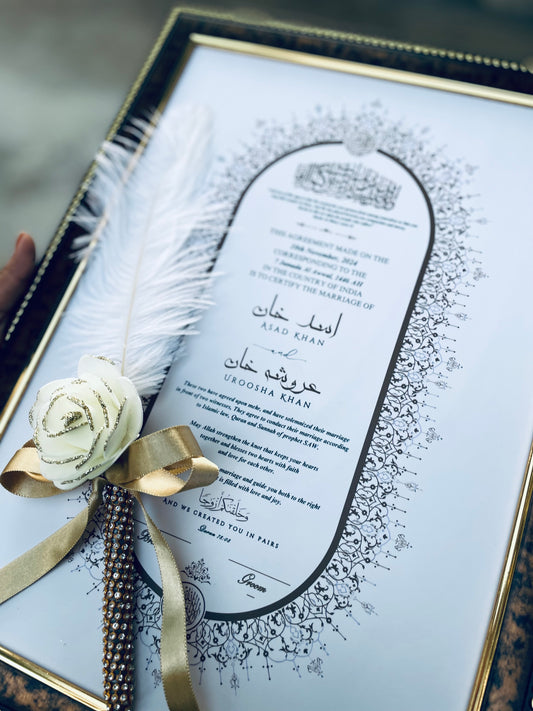 THIS AGREEMENT MADE ON THE
10th November, 2024
CORRESPONDING TO THE
7 Jumada Al Awwal, 1446 AH
IN THE COUNTRY OF INDIA
IS TO CERTIFY THE MARRIAGE OF
اسد خان
ASAD KHAN
and
عروشہ خان
UROOSHA KHAN
These two have agreed upon mehr, and have solemnized their marriage
in front of two witnesses. They agree to conduct their marriage according
to Islamic law, Quran and Sunnah of prophet SAW.
May Allah strengthen the knot that keeps your hearts
together and blesses two hearts with faith
and love for each other.
marriage and guide you both to the right
is filled with love and joy.
وخلقنكم ازواجا
AND WE CREATED YOU IN PAIRS
Quran 78:08
Groom